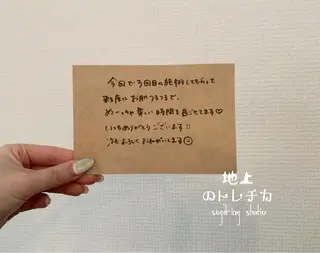 今回で3回目の施術してもらって
来る度に お肌うるうるで、
めーっちゃ 良い時間を 過ごしてます♡
いつもありがとうございます!!
次も よろしく おねがいします☺
地上
のトレチカ
sugaring studio